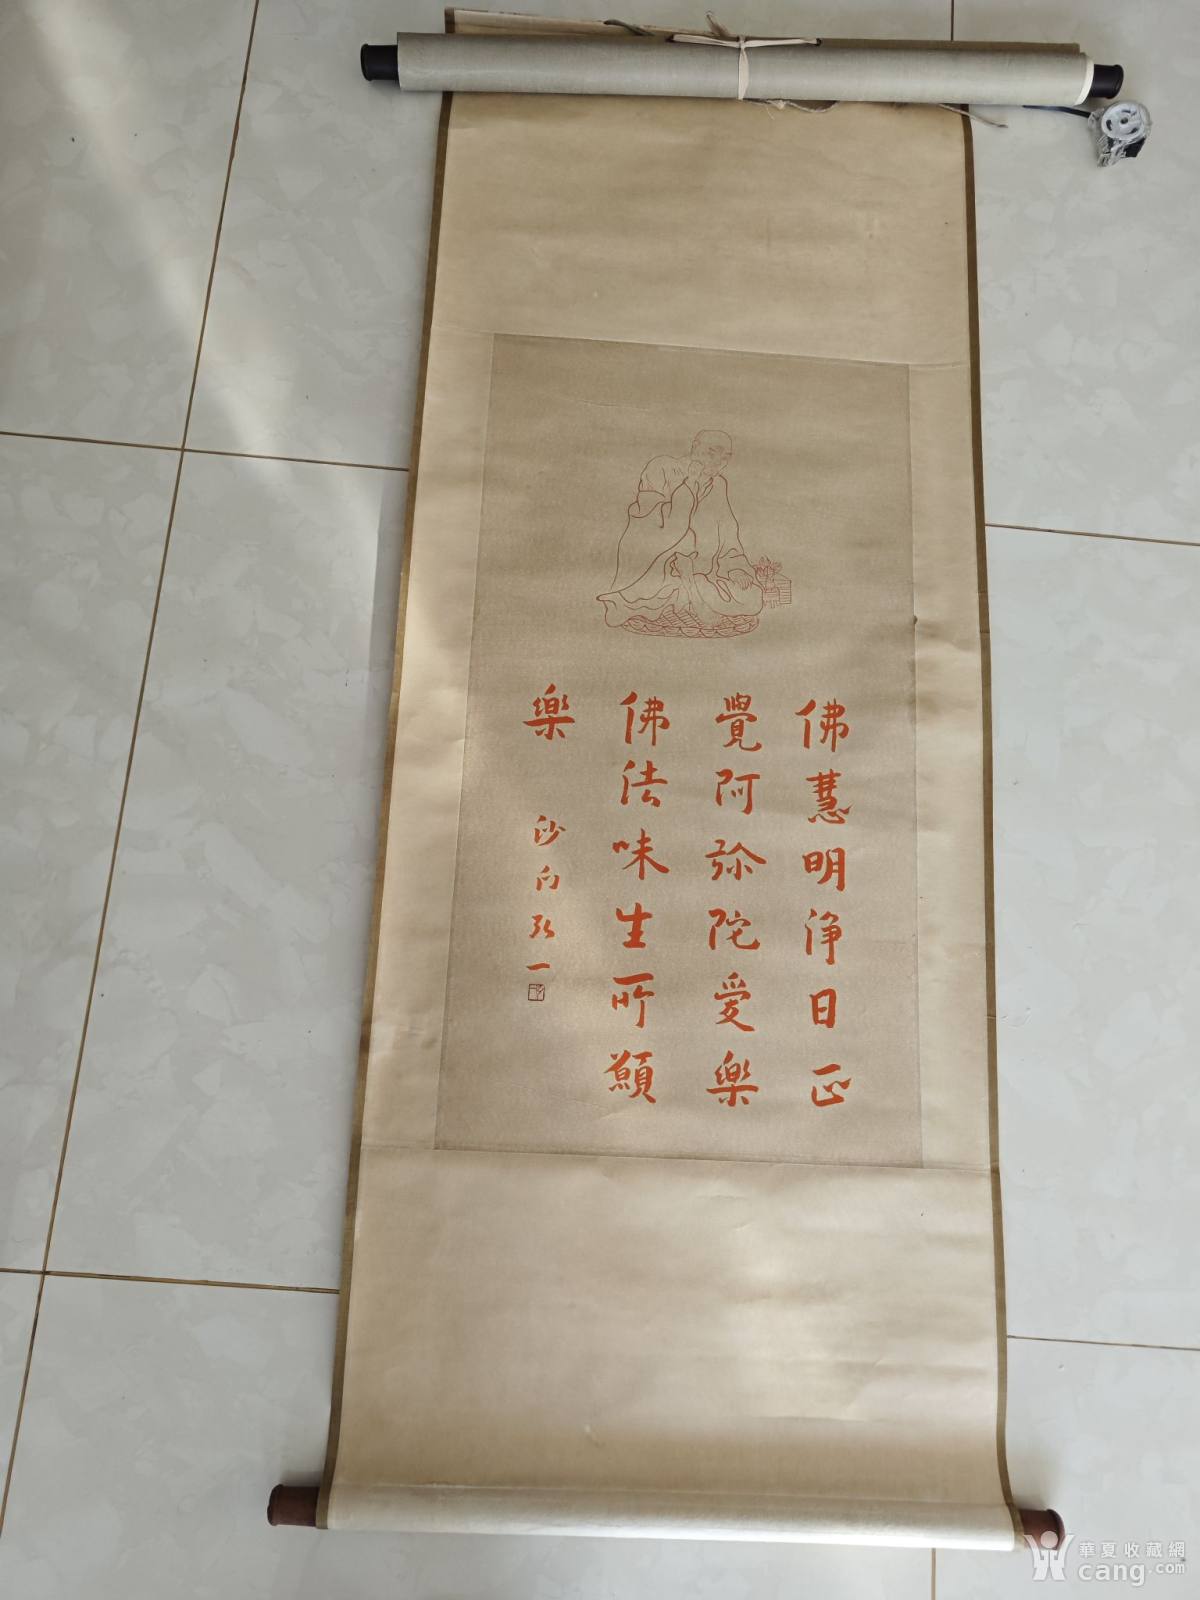 佛慧明浄日正
覺阿弥陀受樂
佛法味生所願
樂
沙门弘一
華夏收藏網
cang.com